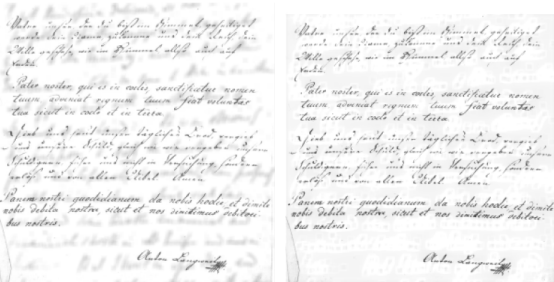 Vater unser der du bist im Himmel geheiliget
werde dein Name zukomme uns dein Reich dein
Wille geschehe wie im Himmel also auch auf
Erden.
Pater noster, qui is in coelis, sanctificatur nomen
tuum adveniat regnum tuum fiat voluntas
tua sicut in coelo et in terra
uns heut unser tägliches Brod, vergieb
uns unsere Schuld gleich wie wir vergeben unsern
Schuldigern führe uns nicht in Versuchung, sondern
uns von allem Uibel. Amen.
Panem nostri quodidianum da nobis hodie, et dimite
nobis debita nostra, sicut et nos dimitimus debitori
bus nostris.
Anton
Vater unser der du bist im Himmel geheiliget
werde dein Name zukomme uns dein Reich dein
Wille geschehe wie im Himmel also auch auf
Erden.
Pater noster, qui is in coelis, sanctificatur nomen
tuum adveniat regnum tuum fiat voluntas
tua sicut in coelo et in terra
uns heut unser tägliches Brod, vergieb
uns unsere Schuld gleich wie wir vergeben unsern
Schuldigern führe uns nicht in Versuchung, sondern
uns von allem Uibel. Amen.
Panem nostri quodidianum da nobis hodie, et dimite
nobis debita nostra, sicut et nos dimitimus debitori
bus nostris.
Anton